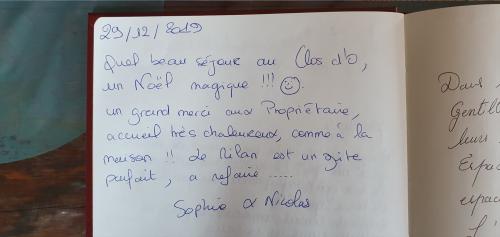 29/12/2019
Quel beau séjour au Clos d'o,
un Noël magique !!! 
un grand merci aux Propriétaire,
accueil très chaleureux, comme à la
maison !! Le Milan est un gite
parfait, a refaire .....
Sophie & Nicolas
Dans
Gentill
leurs
Espac
espac